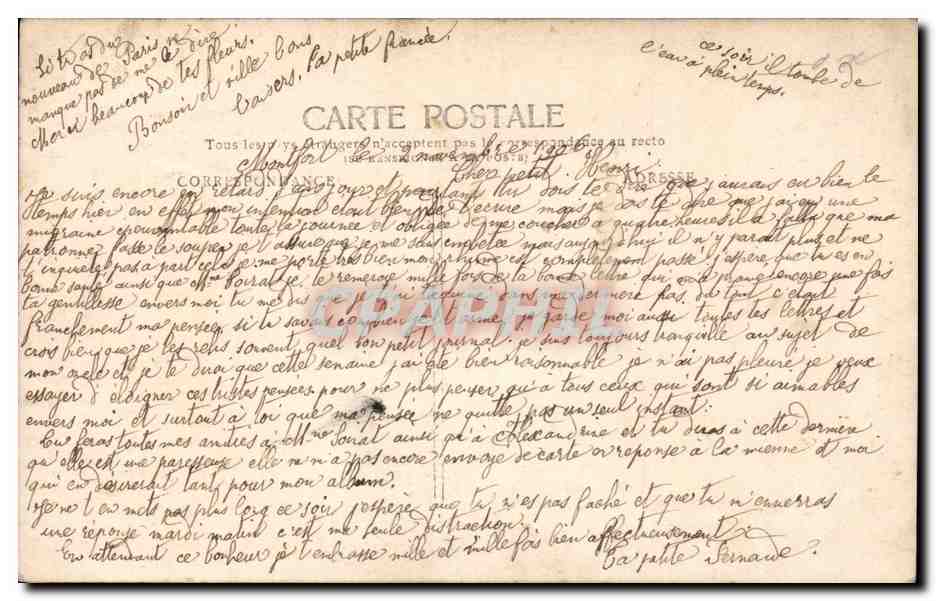 Si tu as du
nouveau de Paris ne
manque pas de me le dire
Merci beaucoup de tes fleurs.
Bonsoir et mille bons
baisers. Ta petite fiancée.
ce soir il tombe de
l'eau à plein temps.
CARTE POSTALE
Tous les pays étrangers n'acceptent pas la correspondance au recto
CORRESPONDANCE ADRESSE
Montfort le 2 novembre
Cher petit Henri
Je suis encore en retard et pourtant je dois te dire que j'aurais eu bien le
temps hier en effet mon intention était bien de t'écrire mais je dois te dire que j'ai eu une
migraine épouvantable toute la journée et obligée de me coucher à quatre heures il a fallu que ma
patronne fasse le souper je t'assure que je me suis embêtée mais aujourd'hui il n'y parait plus et ne
t'inquiète pas à part cela je me porte très bien mon rhume est complètement passé j'espère que tu es en
bonne santé ainsi que Mme Poirat je te remercie mille fois de ta bonne lettre qui me prouve encore une fois
ta gentillesse envers moi tu me dis que je taquine dans ma dernière pas du tout c'était
franchement ma pensée si tu savais combien je t'aime je garde moi aussi toutes les lettres et
crois bien que je les relis souvent, quel bon petit journal. je suis toujours tranquille au sujet de
mon oncle et je te dirai que cette semaine j'ai été bien raisonnable je n'ai pas pleuré je veux
essayer d'éloigner ces tristes pensées pour ne plus penser qu'à tous ceux qui sont si aimables
envers moi et surtout à toi que ma pensée ne quitte pas un seul instant.
Tu feras toutes mes amitiés à Mme Sonat ainsi qu'à Alexandrine et tu diras à cette dernière
qu'elle est une paresseuse elle ne m'a pas encore envoyé de carte en réponse à la mienne et moi
qui en désirerait tant pour mon album.
Je ne t'en mets pas plus long ce soir j'espère que tu n'es pas faché et que tu m'enverras
une réponse mardi matin c'est ma seule distraction.
En attendant ce bonheur je t'embrasse mille et mille fois bien affectueusement
Ta petite Fernande.
CPAPHIL